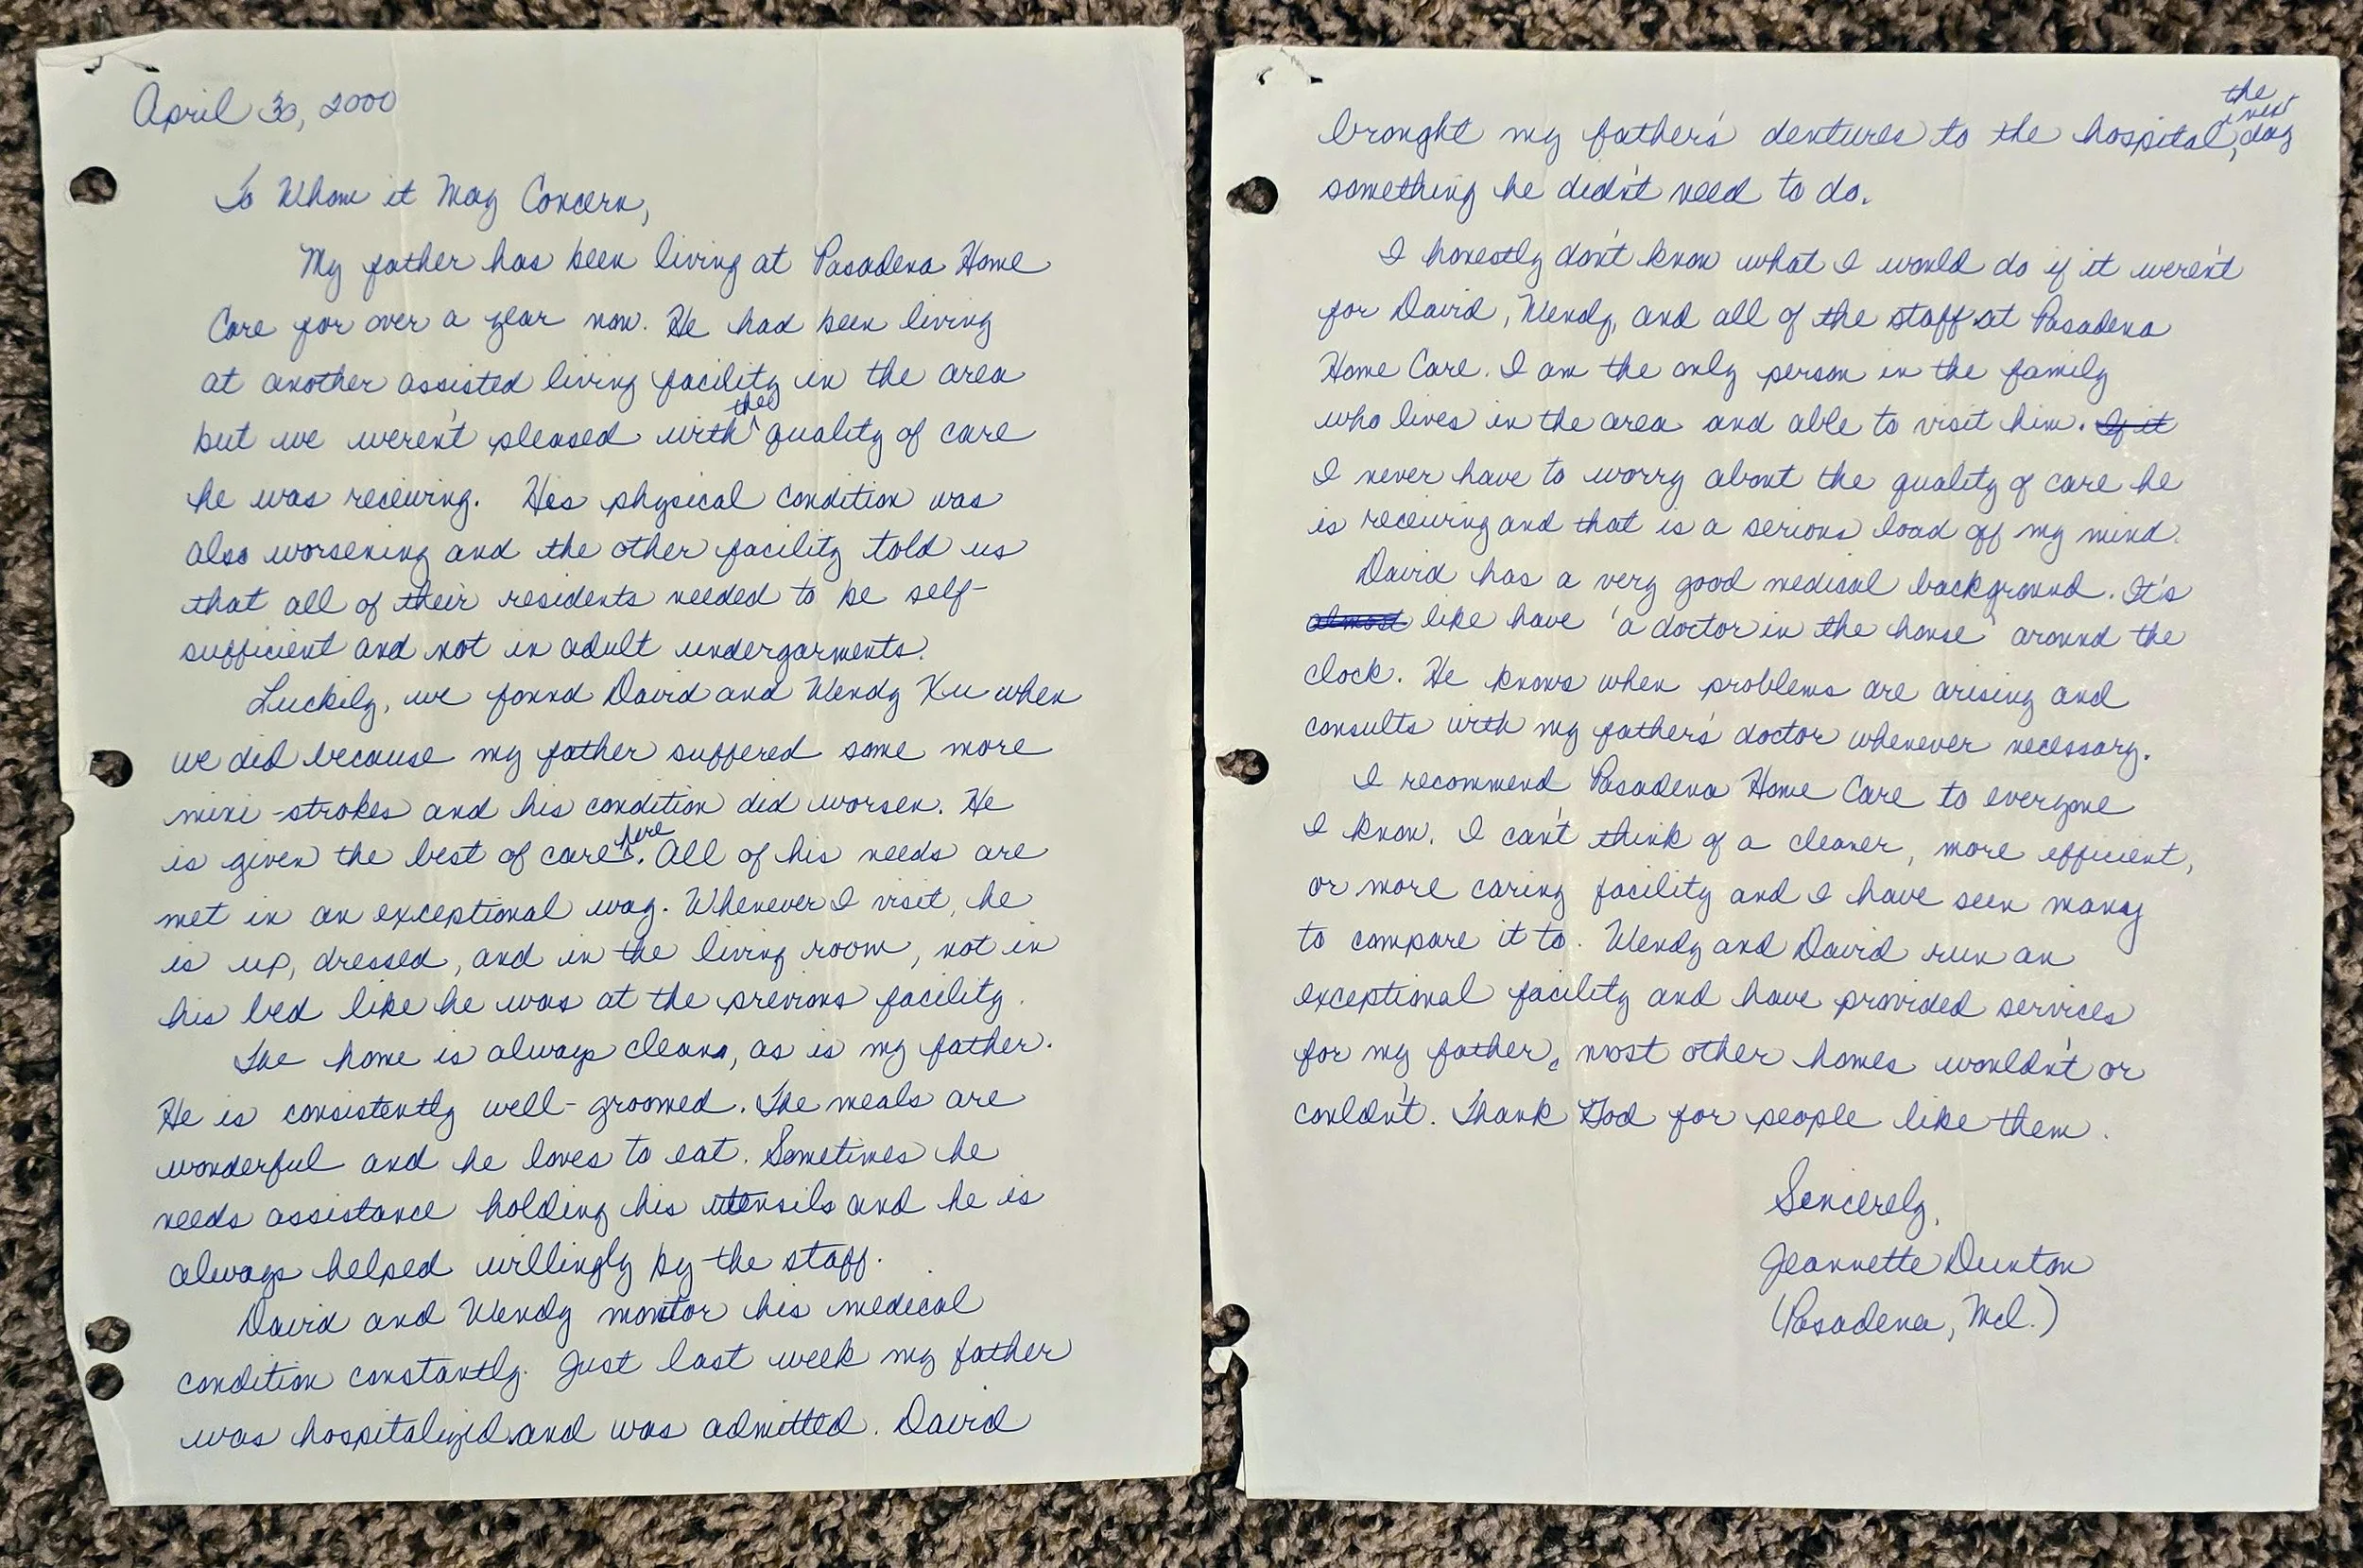 April 30, 2000
To Whom it May Concern,
My father has been living at Pasadena Home
Care for over a year now. He had been living
at another assisted living facility in the area
but we weren't pleased with the quality of care
he was receiving. His physical condition was
also worsening and the other facility told us
that all of their residents needed to be self-
sufficient and not in adult undergarments.
Luckily, we found David and Wendy Xu when
we did because my father suffered some more
mini-strokes and his condition did worsen. He
is given the best of care here. All of his needs are
met in an exceptional way. Whenever I visit, he
is up, dressed, and in the living room, not in
his bed like he was at the previous facility.
The home is always clean, as is my father.
He is consistently well-groomed. The meals are
wonderful and he loves to eat. Sometimes he
needs assistance holding his utensils and he is
always helped willingly by the staff.
David and Wendy monitor his medical
condition constantly. Just last week my father
was hospitalized and was admitted. David
brought my father's dentures to the hospital, the next day
something he didn't need to do.
I honestly don't know what I would do if it weren't
for David, Wendy, and all of the staff at Pasadena
Home Care. I am the only person in the family
who lives in the area and able to visit him. If it
I never have to worry about the quality of care he
is receiving and that is a serious load off my mind.
David has a very good medical background. It's
almost like have 'a doctor in the house' around the
clock. He knows when problems are arising and
consults with my father's doctor whenever necessary.
I recommend Pasadena Home Care to everyone
I know. I can't think of a cleaner, more efficient,
or more caring facility and I have seen many
to compare it to. Wendy and David run an
exceptional facility and have provided services
for my father, most other homes wouldn't or
couldn't. Thank God for people like them.
Sincerely,
Jeannette Dunton
(Pasadena, Md.)